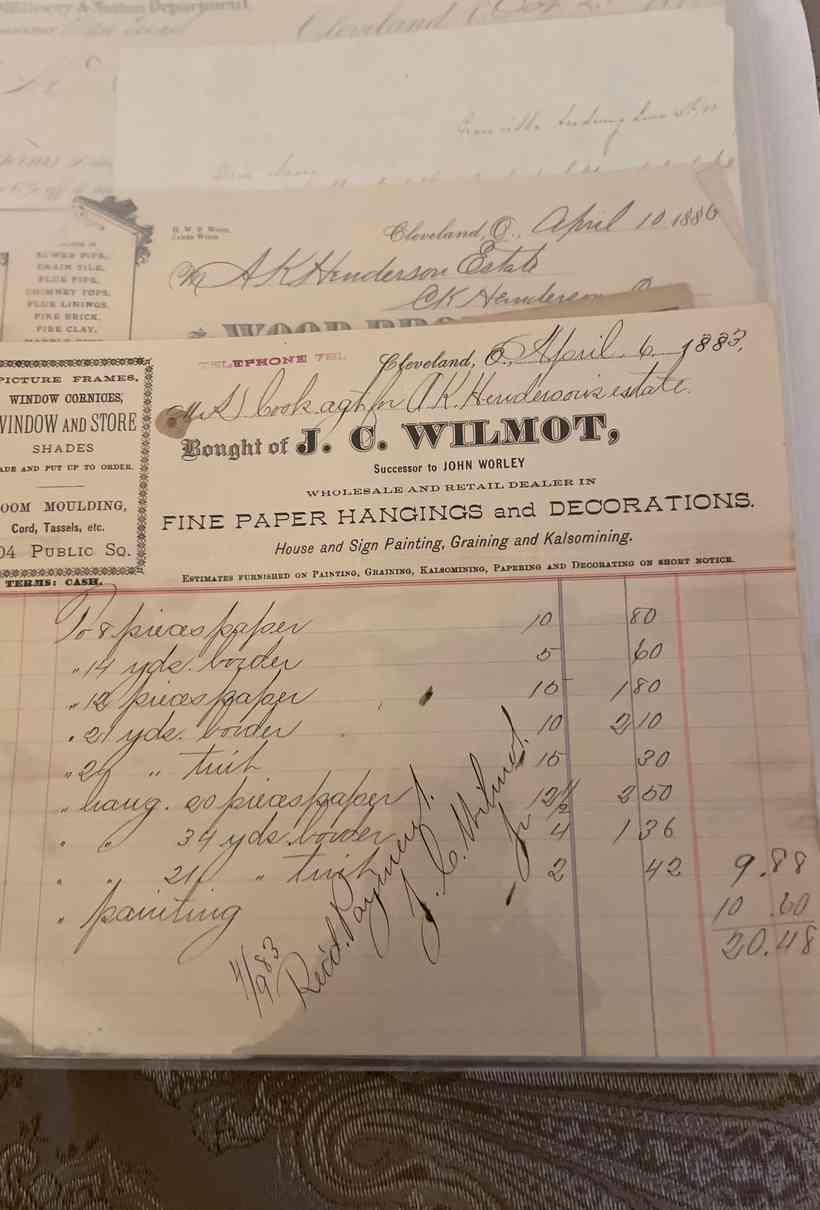 Cleveland
H. W. S. Wood,
James Wood
Cleveland, O., April 10 1886
M A K Henderson Estate
C K Henderson
SEWER PIPE,
DRAIN TILE,
FLUE PIPE,
CHIMNEY TOPS,
FLUE LININGS,
FIRE BRICK,
FIRE CLAY,
WOOD BRO
TELEPHONE 781.
Cleveland, O., April 6 1883,
Cook agt for A. K. Henderson's estate.
Bought of J. C. WILMOT,
Successor to JOHN WORLEY
WHOLESALE AND RETAIL DEALER IN
FINE PAPER HANGINGS and DECORATIONS.
House and Sign Painting, Graining and Kalsomining.
ESTIMATES FURNISHED ON PAINTING, GRAINING, KALSOMINING, PAPERING AND DECORATING ON SHORT NOTICE.
PICTURE FRAMES,
WINDOW CORNICES,
WINDOW AND STORE
SHADES
ADE AND PUT UP TO ORDER.
OOM MOULDING,
Cord, Tassels, etc.
04 PUBLIC SQ.
TERMS: CASH.
To 8 pieces paper 10 80
" 14 yds. border 5 60
" 12 pieces paper 15 1 80
" 21 yds. border 10 2 10
" " 15 30
" hang. 20 pieces paper 12 1/2 2 50
" " 34 yds. border 4 1 36
" " 21 " 2 42 9.88
" painting 10 .60
20.48
4/9 83
Rec'd. Payment.
J. C. Wilmot.